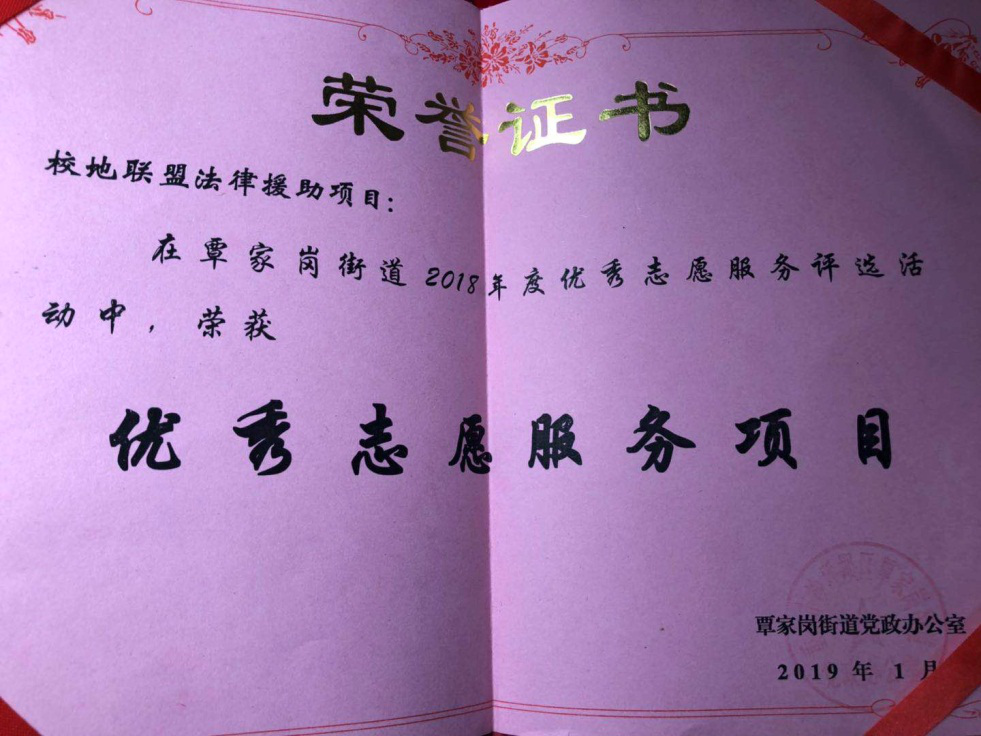 荣誉证书
校地联盟法律援助项目:
在覃家岗街道2018年度优秀志愿服务评选活
动中，荣获
优秀志愿服务项目
覃家岗街道党政办公室
2019年1月